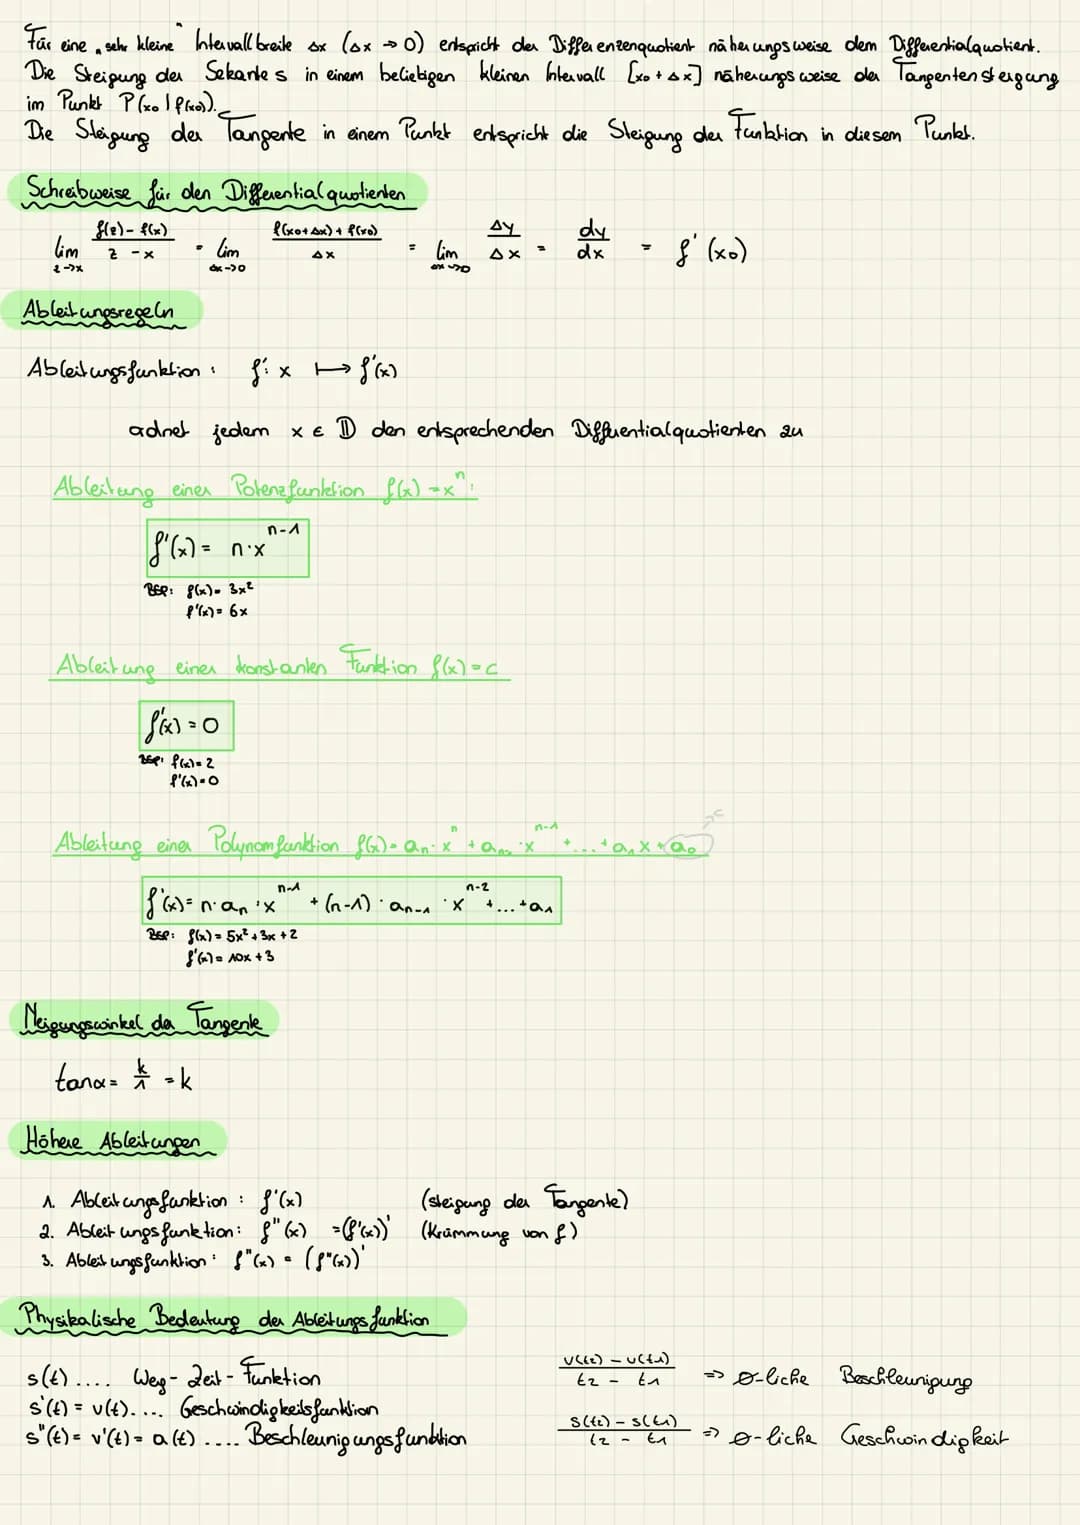 Für eine „sehr kleine" Intervallbreite Δx (Δx → 0) entspricht der Differenzenquotient näherungsweise dem Differentialquotient.
Die Steigung der Sekante s in einem beliebigen kleinen Intervall [x₀ + Δx] näherungsweise der Tangentensteigung
im Punkt P(x₀ | f(x₀)).
Die Steigung der Tangente in einem Punkt entspricht die Steigung der Funktion in diesem Punkt.
Schreibweise für den Differentialquotienten
lim z→x (f(z) - f(x))/(z - x) = lim Δx→0 (f(x₀+Δx) + f(x₀))/Δx = lim Δx→0 Δy/Δx = dy/dx = f'(x₀)
Ableitungsregeln
Ableitungsfunktion: f': x ↦ f'(x)
ordnet jedem x ∈ D den entsprechenden Differentialquotienten zu
Ableitung einer Potenzfunktion f(x) = xⁿ:
f'(x) = n·xⁿ⁻¹
BSP: f(x) = 3x²
f'(x) = 6x
Ableitung einer konstanten Funktion f(x) = c
f'(x) = 0
BSP: f(x) = 2
f'(x) = 0
Ableitung einer Polynomfunktion f(x) = aₙ·xⁿ + aₙ₋₁·xⁿ⁻¹ + ... + a₁x + a₀
f'(x) = n·aₙ·xⁿ⁻¹ + (n-1)·aₙ₋₁·xⁿ⁻² + ... + a₁
BSP: f(x) = 5x² + 3x + 2
f'(x) = 10x + 3
Neigungswinkel der Tangente
tanα = k/1 = k
Höhere Ableitungen
1. Ableitungsfunktion: f'(x) (Steigung der Tangente)
2. Ableitungsfunktion: f''(x) = (f'(x))' (Krümmung von f)
3. Ableitungsfunktion: f''(x) = (f''(x))'
Physikalische Bedeutung der Ableitungsfunktion
s(t) .... Weg-Zeit-Funktion
s'(t) = v(t).... Geschwindigkeitsfunktion
s''(t) = v'(t) = a(t) .... Beschleunigungsfunktion
(v(t₂) - v(t₁))/(t₂ - t₁) => ø-liche Beschleunigung
(s(t₂) - s(t₁))/(t₂ - t₁) => ø-liche Geschwindigkeit